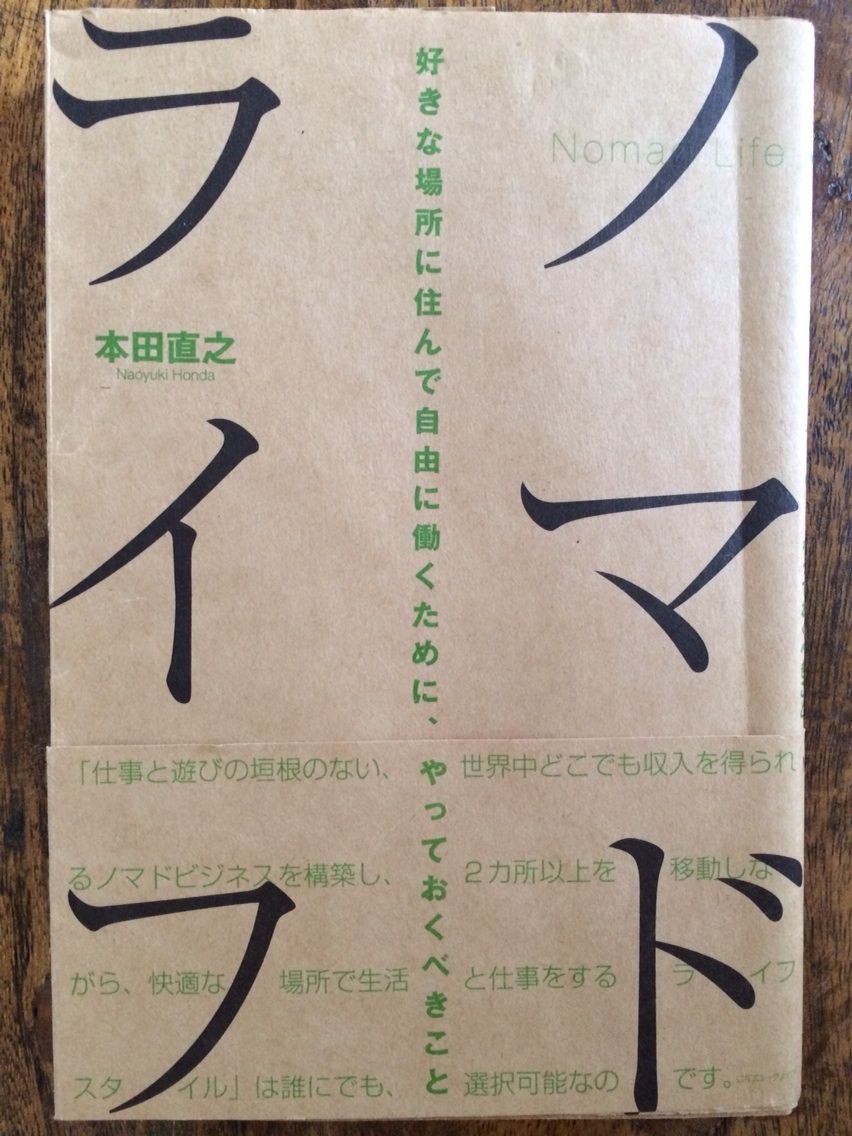 ノマド
ライフ
Nomad Life
好きな場所に住んで自由に働くために、やっておくべきこと
本田直之
Naoyuki Honda
「仕事と遊びの垣根のない、世界中どこでも収入を得られ
るノマドビジネスを構築し、2カ所以上を移動しな
がら、快適な場所で生活と仕事をするライフ
スタイル」は誰にでも、選択可能なのです。